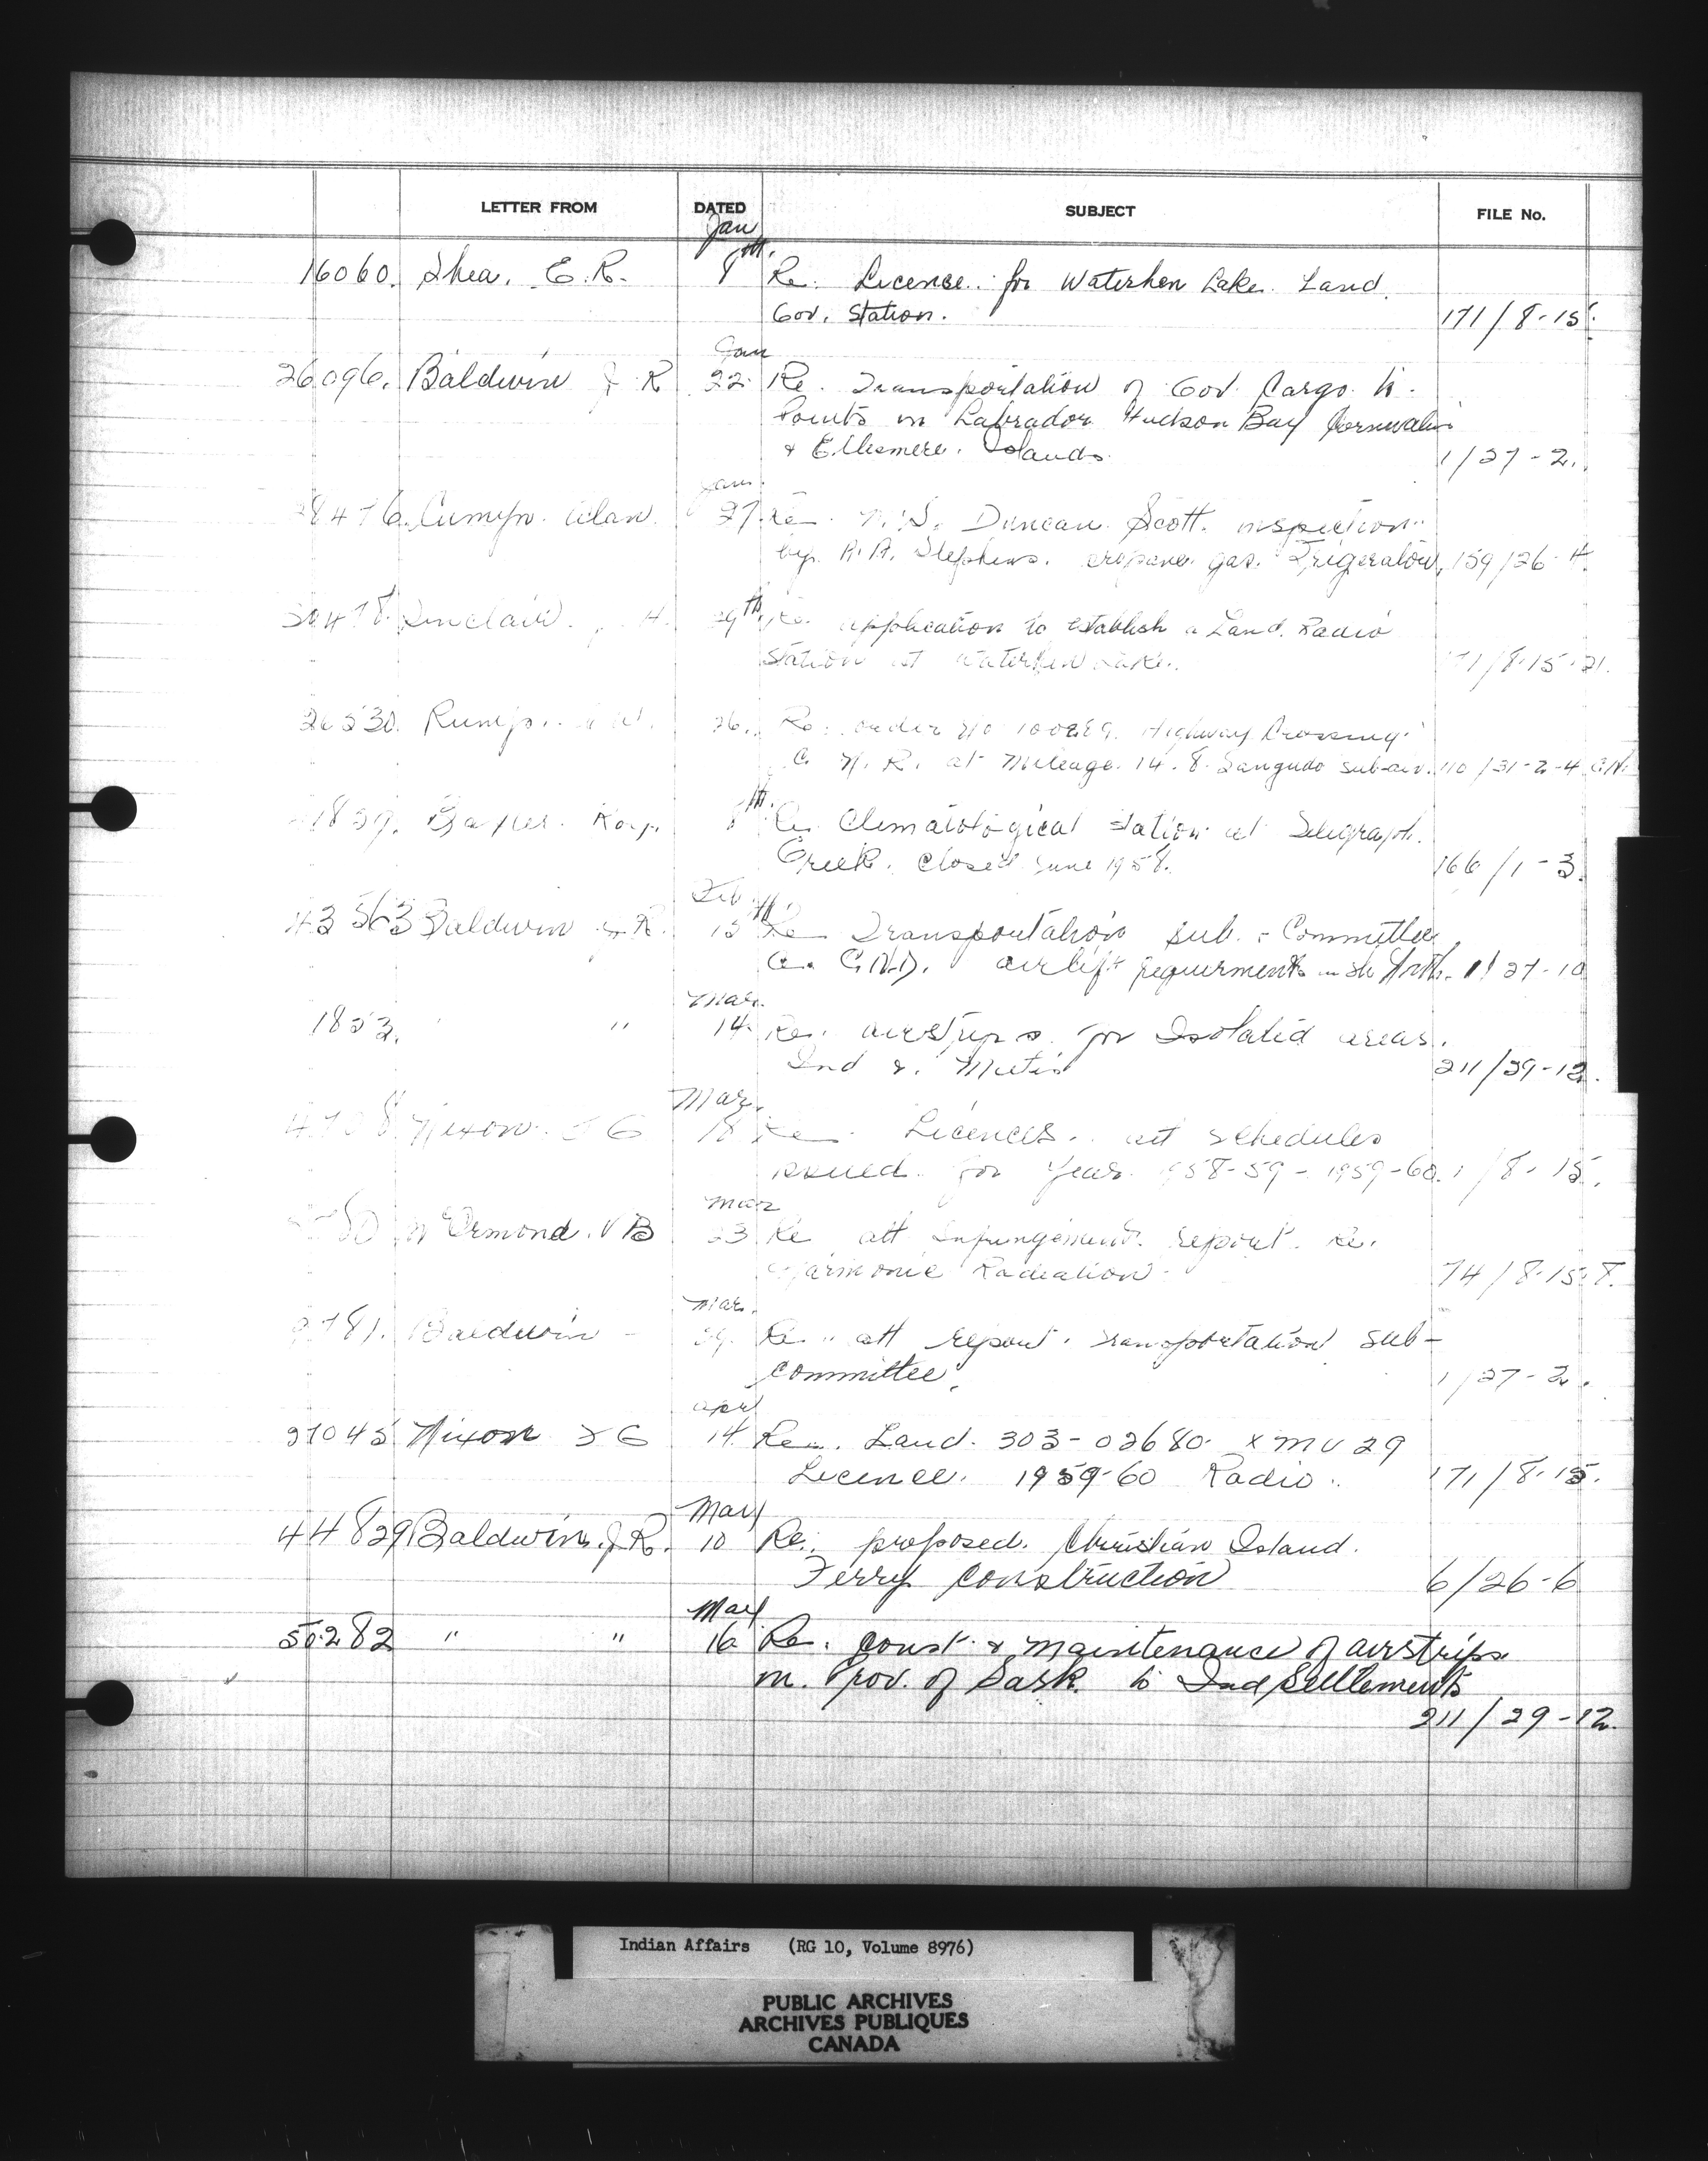 LETTER FROM DATED SUBJECT FILE No.
Jan
16060. Shea, E. R. 8th. Re. Licence for Waterhen Lake Land
Gov. Station. 171/8-15.
Jan
26096. Baldwin J. R. 22 Re. Transportation of Gov. Cargo to
Points in Labrador Hudson Bay Cornwallis
& Ellesmere. Islands 1/27-2.
Jan.
8476. Cumyn. Alan. 27. Re. M.S. Duncan Scott. inspection
by. A. A. Stephens. propane gas. Frigerator, 159/26-4.
Sinclair. H. 29th Re. application to establish a Land. Radio
Station at Waterhen Lake. 171/8-15-21.
26530. Rump. 26. Re. order No 100889. Highway Crossing
C. N. R. at Mileage 14.8. Sangudo sub-div. 110/31-2-4 C.N.
1839. 8th. Re. Climatological station at Telegraph.
Creek. closed June 1958. 166/1-3.
Feb.
43563 Baldwin J. R. 15th. Re Transportation sub.-Committee
airlift requirments in the North. 1/27-10
Mar.
1853. " 14. Re. airstrips for Isolated areas.
Ind &. Metis 211/29-12.
Mar.
4708. Nixon. G 18 Re. Licences. att schedules
issued. for Year. 1958-59 - 1959-60. 1/8-15.
Mar
Ormond. V B 23 Re att Infringement. report. Re.
Harmonic Radiation. 74/8-15-8.
Mar.
9781. Baldwin - 29. Re. att report. Transportation sub-
committee. 1/27-2.
April
27045 Nixon G 14 Re. Land. 303-02680. XMU 29
Licence. 1959-60 Radio. 171/8-15.
May
44829 Baldwin. J. R. 10 Re. proposed. Christian Island.
Ferry construction 6/26-6
May
50282 " " 16 Re. const. & maintenance of airstrips
in. Prov. of Sask. to Ind Settlements
211/29-12.
Indian Affairs (RG 10, Volume 8976)
PUBLIC ARCHIVES
ARCHIVES PUBLIQUES
CANADA